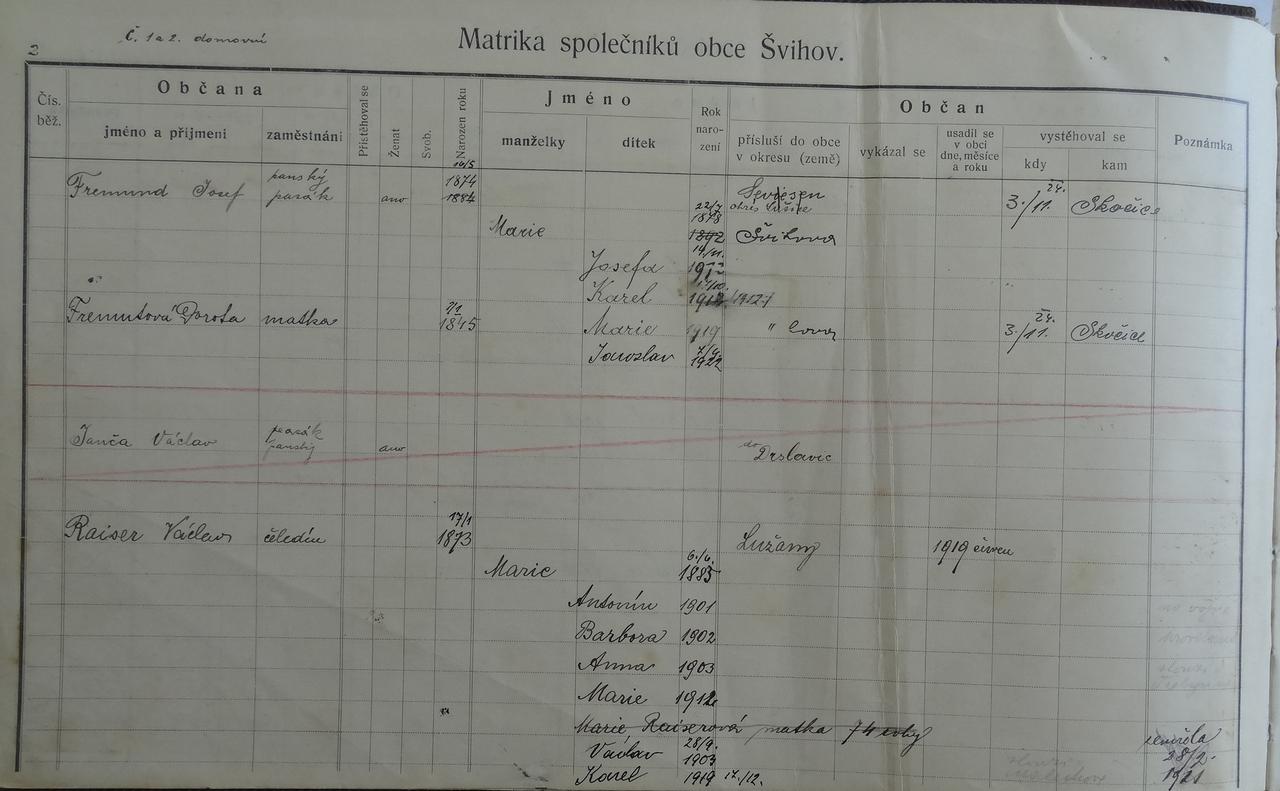 2
Č. 1 a 2. domovní
Matrika společníků obce Švihov.
Čís. běž.
Občana
jméno a příjmení
zaměstnání
Přistěhoval se
Ženat
Svob.
Narozen roku
Jméno
manželky
dítek
Rok naro-zení
Občan
přísluší do obce v okresu (země)
vykázal se
usadil se v obci dne, měsíce a roku
vystěhoval se
kdy
kam
Poznámka
panský 1874
Fremund Josef pasák ano 1884 3./11. 24. Skočice
22/7 1878
Marie 1892 Švihova
14/11.
Josefa
Karel 1912 /1912/
Fremutová Dorota matka 2/1 1845 Marie 1919 " 3./11. 24. Skočice
Jaroslav 1922
pasák
Janča Václav panský ano do Drslavic
17/1
Raiser Václav čeledín 1873 Lužany 1919 červen
6./4.
Marie 1885
Antonín 1901
Barbora 1902
Anna 1903
Marie 1912
Marie Raiserová matka 74 roky zemřela
28/9. 28/2.
Václav 1903 1921
Karel 1919 17./12.